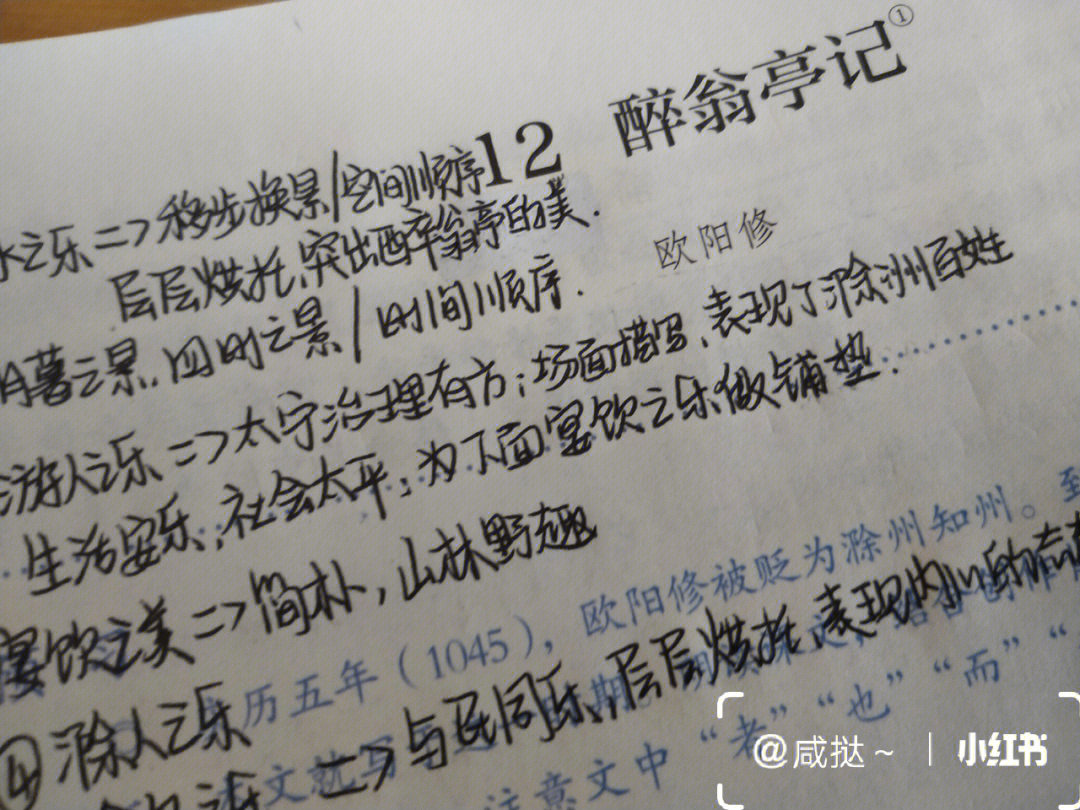 12 醉翁亭记①
水之乐=>移步换景/空间顺序
层层烘托,突出醉翁亭的美.
欧阳修
暮之景,四时之景/时间顺序.
游人之乐=>太守治理有方;场面描写,表现了滁州百姓
生活安乐,社会太平;为下面宴饮之乐做铺垫.
宴饮之美=>简朴,山林野趣
历五年(1045),欧阳修被贬为滁州知州。到
④滁人之乐
=>与民同乐,层层烘托,表现内心的
注意文中“者”“也”“而”“
@咸挞~ | 小红书